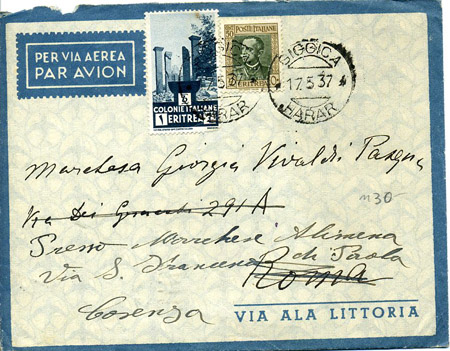 PER VIA AEREA
PAR AVION
COLONIE ITALIANE
1 ERITREA
POSTE ITALIANE
ERITREA
GIGGICA
17.5.37
HARAR
Marchesa Giorgia Vivaldi Pasqua
Via Dei Gracchi 291 A
Presso Marchese Alimena
Via S. Francesco di Paola
Roma
Cosenza
1130-
VIA ALA LITTORIA